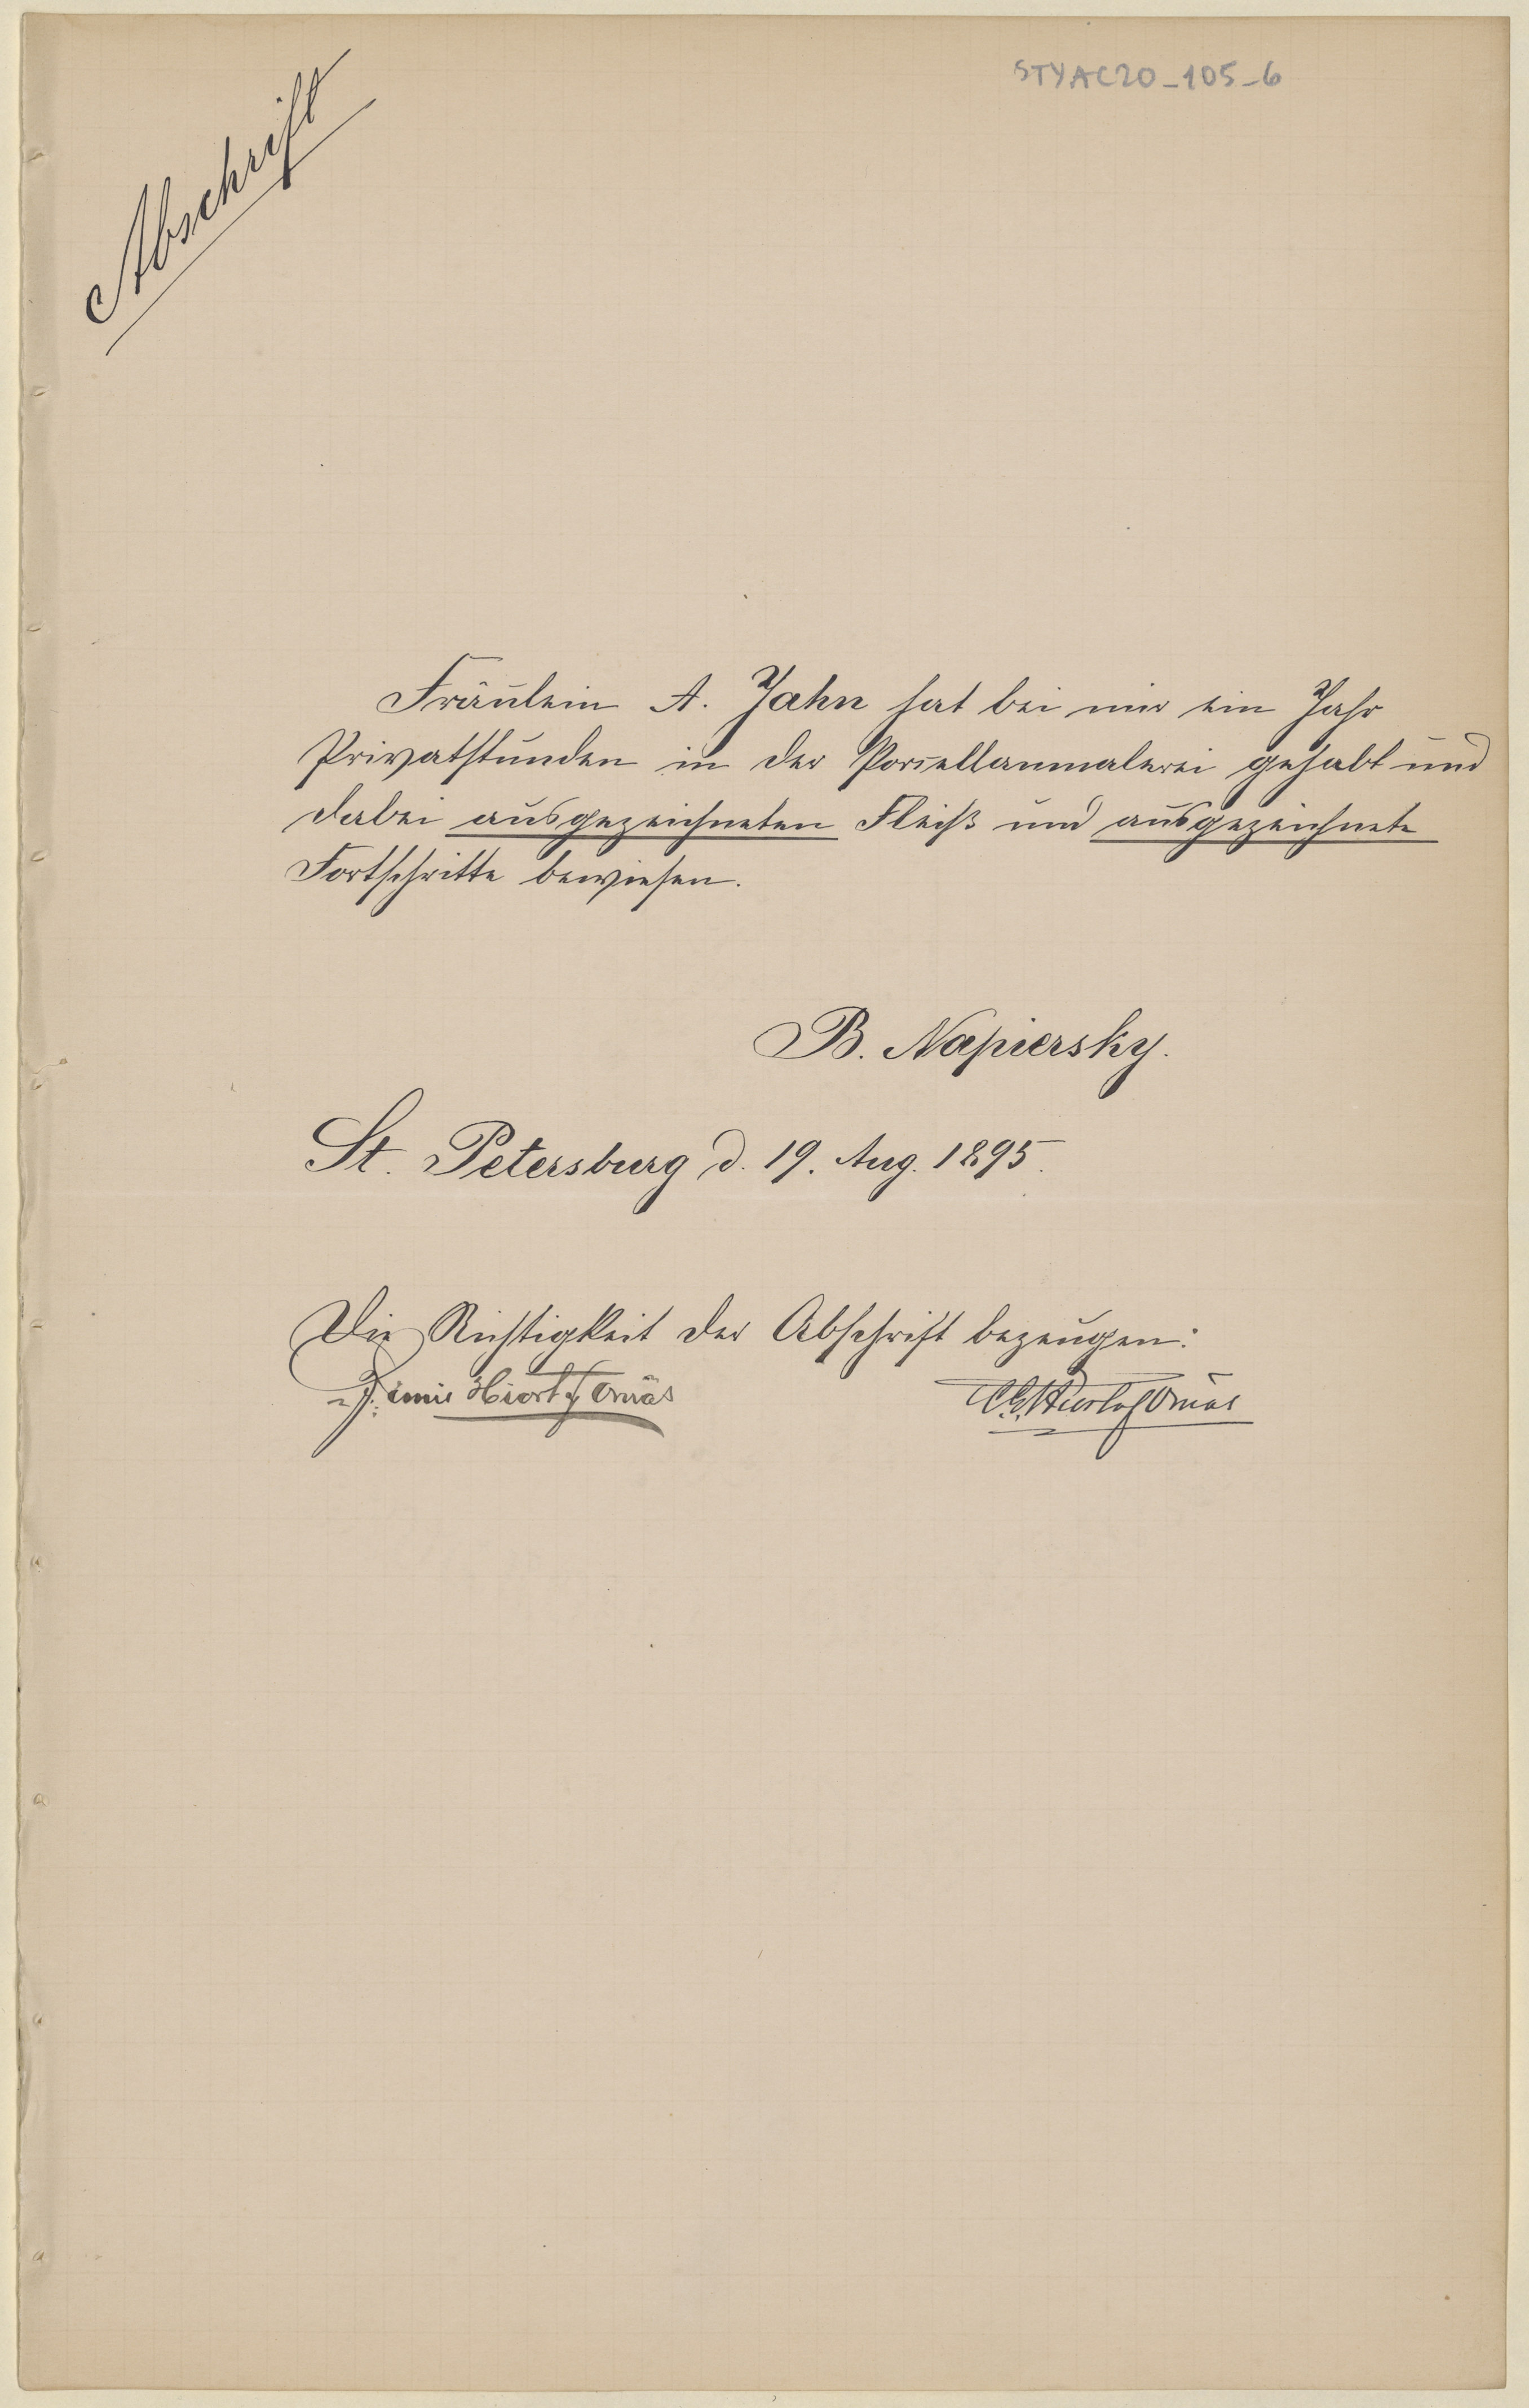 STYAC20_105_6
Abschrift
Fräulein A. Jahn hat bei mir ein Jahr
Privatstunden in der Porzellanmalerei gehabt und
dabei ausgezeichneten Fleiß und ausgezeichnete
Fortschritte bewiesen.
B. Napiersky.
St. Petersburg d. 19. Aug. 1895.
Die Richtigkeit der Abschrift bezeugen:
Hiort af Ornäs
Hiort af Ornäs